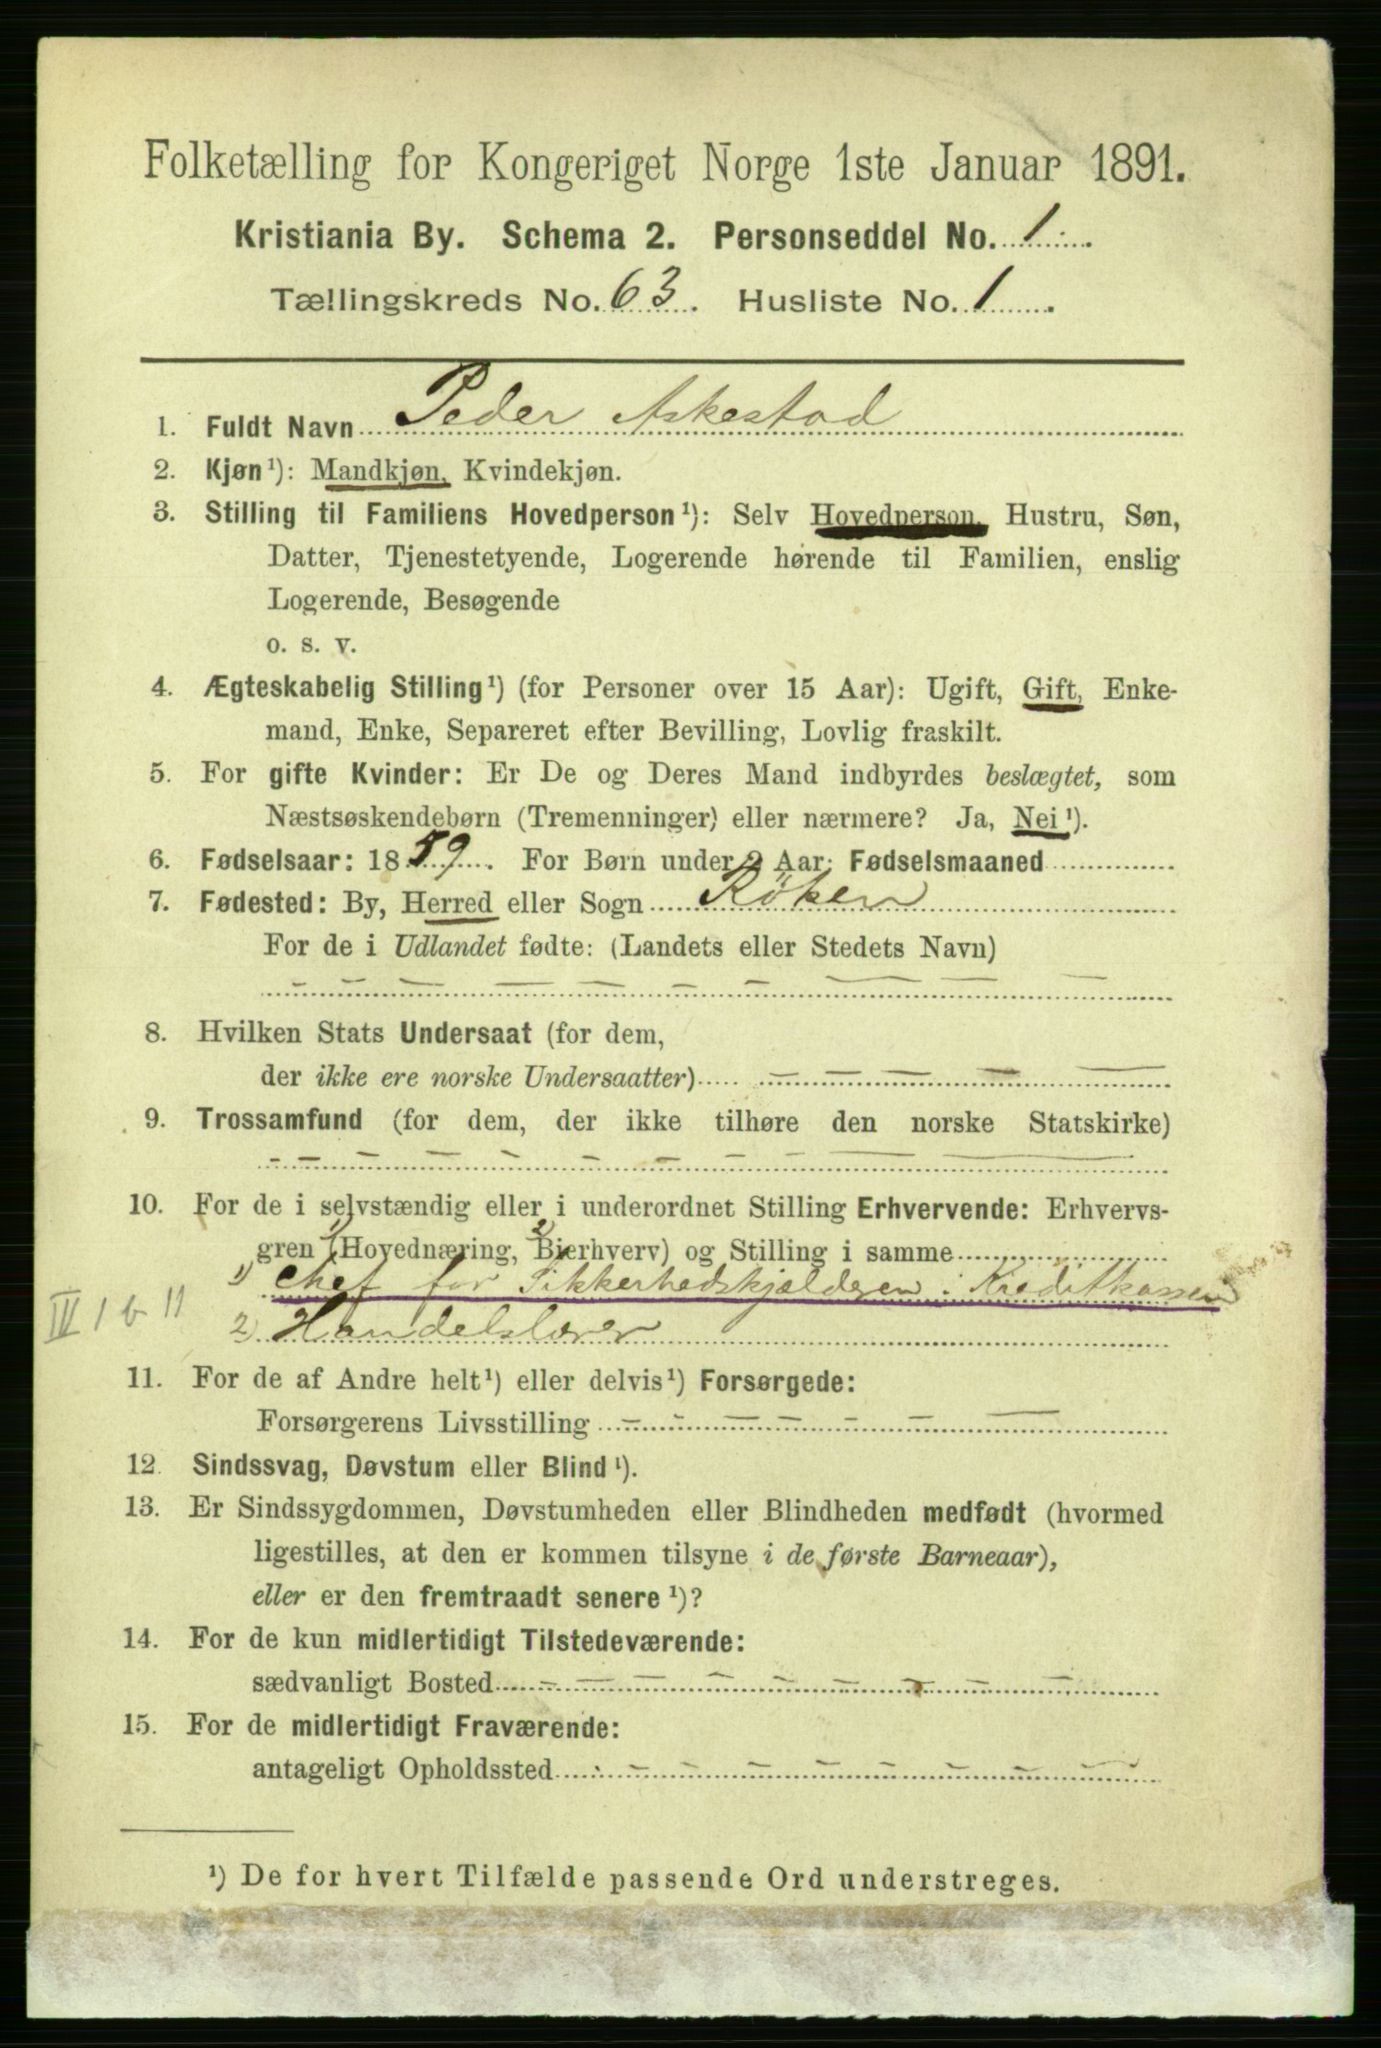 Folketælling for Kongeriget Norge 1ste Januar 1891.
Kristiania By. Schema 2. Personseddel No. 1.
Tællingskreds No. 63. Husliste No. 1.
1. Fuldt Navn Peder Askestad
2. Kjøn¹): Mandkjøn, Kvindekjøn.
3. Stilling til Familiens Hovedperson¹): Selv Hovedperson, Hustru, Søn,
Datter, Tjenestetyende, Logerende hørende til Familien, enslig
Logerende, Besøgende
o. s. v.
4. Ægteskabelig Stilling¹) (for Personer over 15 Aar): Ugift, Gift, Enke-
mand, Enke, Separeret efter Bevilling, Lovlig fraskilt.
5. For gifte Kvinder: Er De og Deres Mand indbyrdes beslægtet, som
Næstsøskendebørn (Tremenninger) eller nærmere? Ja, Nei¹).
6. Fødselsaar: 1859. For Børn under 2 Aar: Fødselsmaaned
7. Fødested: By, Herred eller Sogn Röken
For de i Udlandet fødte: (Landets eller Stedets Navn)
8. Hvilken Stats Undersaat (for dem,
der ikke ere norske Undersaatter)
9. Trossamfund (for dem, der ikke tilhøre den norske Statskirke)
10. For de i selvstændig eller i underordnet Stilling Erhvervende: Erhvervs-
gren 1) (Hovednæring, 2) Bierhverv) og Stilling i samme
1) Chef for Sikkerhedskjælderen i Kreditkassen
IV 1 b 11
2) Handelslærer
11. For de af Andre helt¹) eller delvis¹) Forsørgede:
Forsørgerens Livsstilling
12. Sindssvag, Døvstum eller Blind¹).
13. Er Sindssygdommen, Døvstumheden eller Blindheden medfødt (hvormed
ligestilles, at den er kommen tilsyne i de første Barneaar),
eller er den fremtraadt senere¹)?
14. For de kun midlertidigt Tilstedeværende:
sædvanligt Bosted
15. For de midlertidigt Fraværende:
antageligt Opholdssted
¹) De for hvert Tilfælde passende Ord understreges.